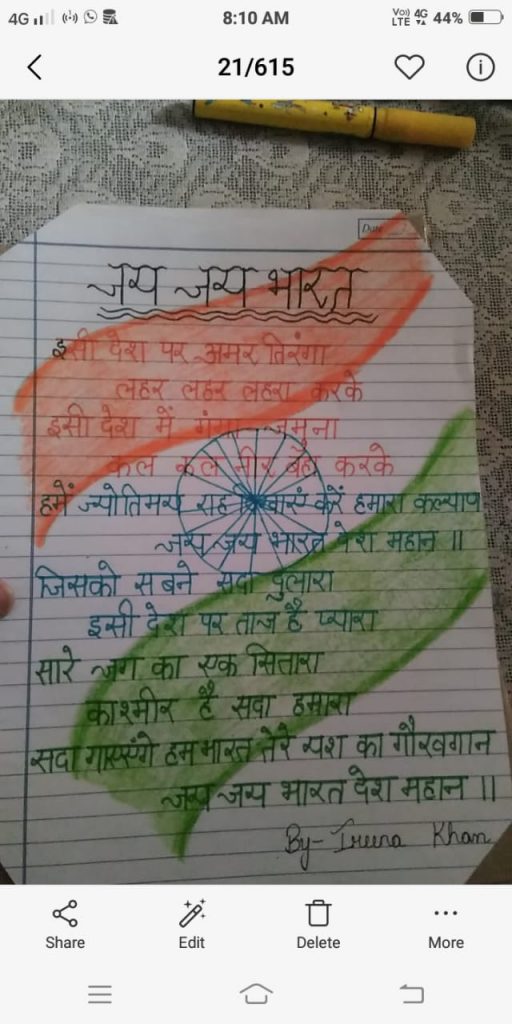 4G
8:10 AM
Vo) 4G 44%
LTE
21/615
Date
जय जय भारत
इसी देश पर अमर तिरंगा
लहर लहर लहरा करके
इसी देश में गंगा जमुना
कल कल नीर बहा करके
हमें ज्योतिमय राह करें हमारा कल्याण
जय जय भारत देश महान ॥
जिसको सबने सदा दुलारा
इसी देश पर ताज है प्यारा
सारे जग का एक सितारा
काश्मीर है सदा हमारा
सदा गाएंगे हम भारत तेरे यश का गौरवगान
जय जय भारत देश महान ॥
By- Khan
Share
Edit
Delete
More